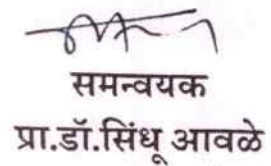 समन्वयक
प्रा.डॉ.सिंधू आवळे